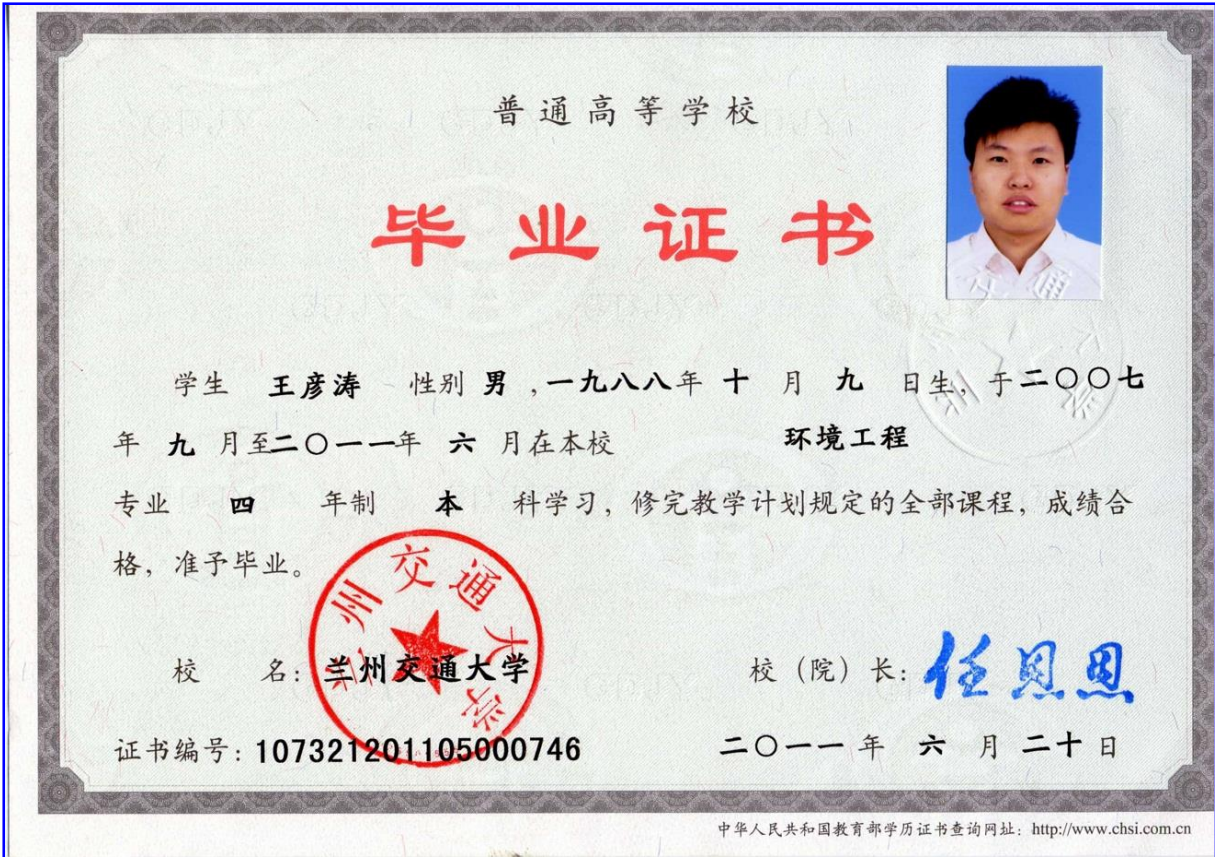 普通高等学校
毕业证书
学生 王彦涛 性别 男 ,一九八八年 十 月 九 日生, 于二〇〇七
年 九 月至二〇一一年 六 月在本校 环境工程
专业 四 年制 本 科学习, 修完教学计划规定的全部课程, 成绩合
格, 准予毕业。
兰州交通大学
校 名: 兰州交通大学
校(院)长: 任恩恩
证书编号: 107321201105000746
二〇一一年 六 月 二十 日
中华人民共和国教育部学历证书查询网址: http://www.chsi.com.cn